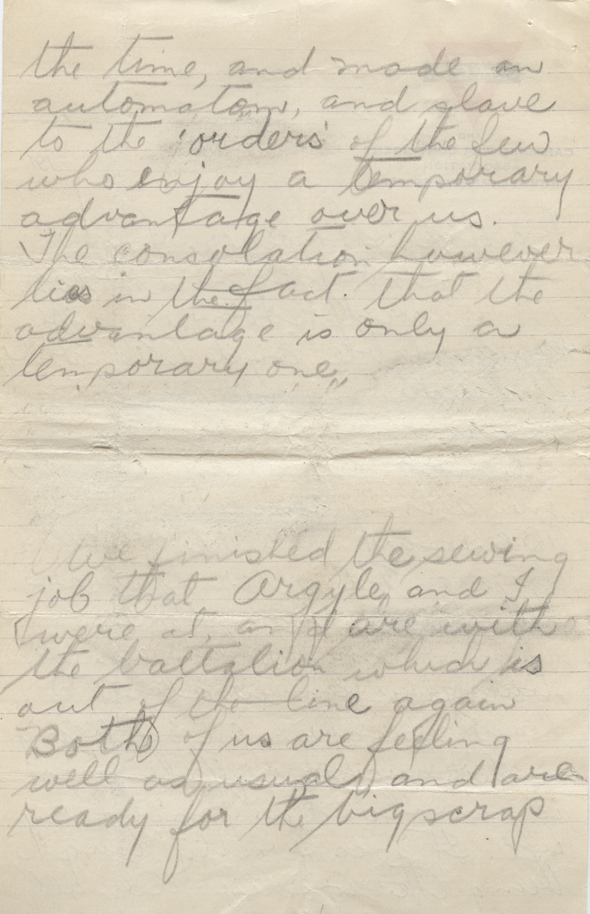 the time, and made an
automatom, and slave
to the 'orders' of the few
who enjoy a temporary
advantage over us.
The consolation however
lies in the fact. that the
advantage is only a
temporary one,,
We finished the sewing
job that Argyle, and I,
were at, and are with
the battalion which is
out of the line again
Both of us are feeling
well as usual, and are
ready for the big scrap